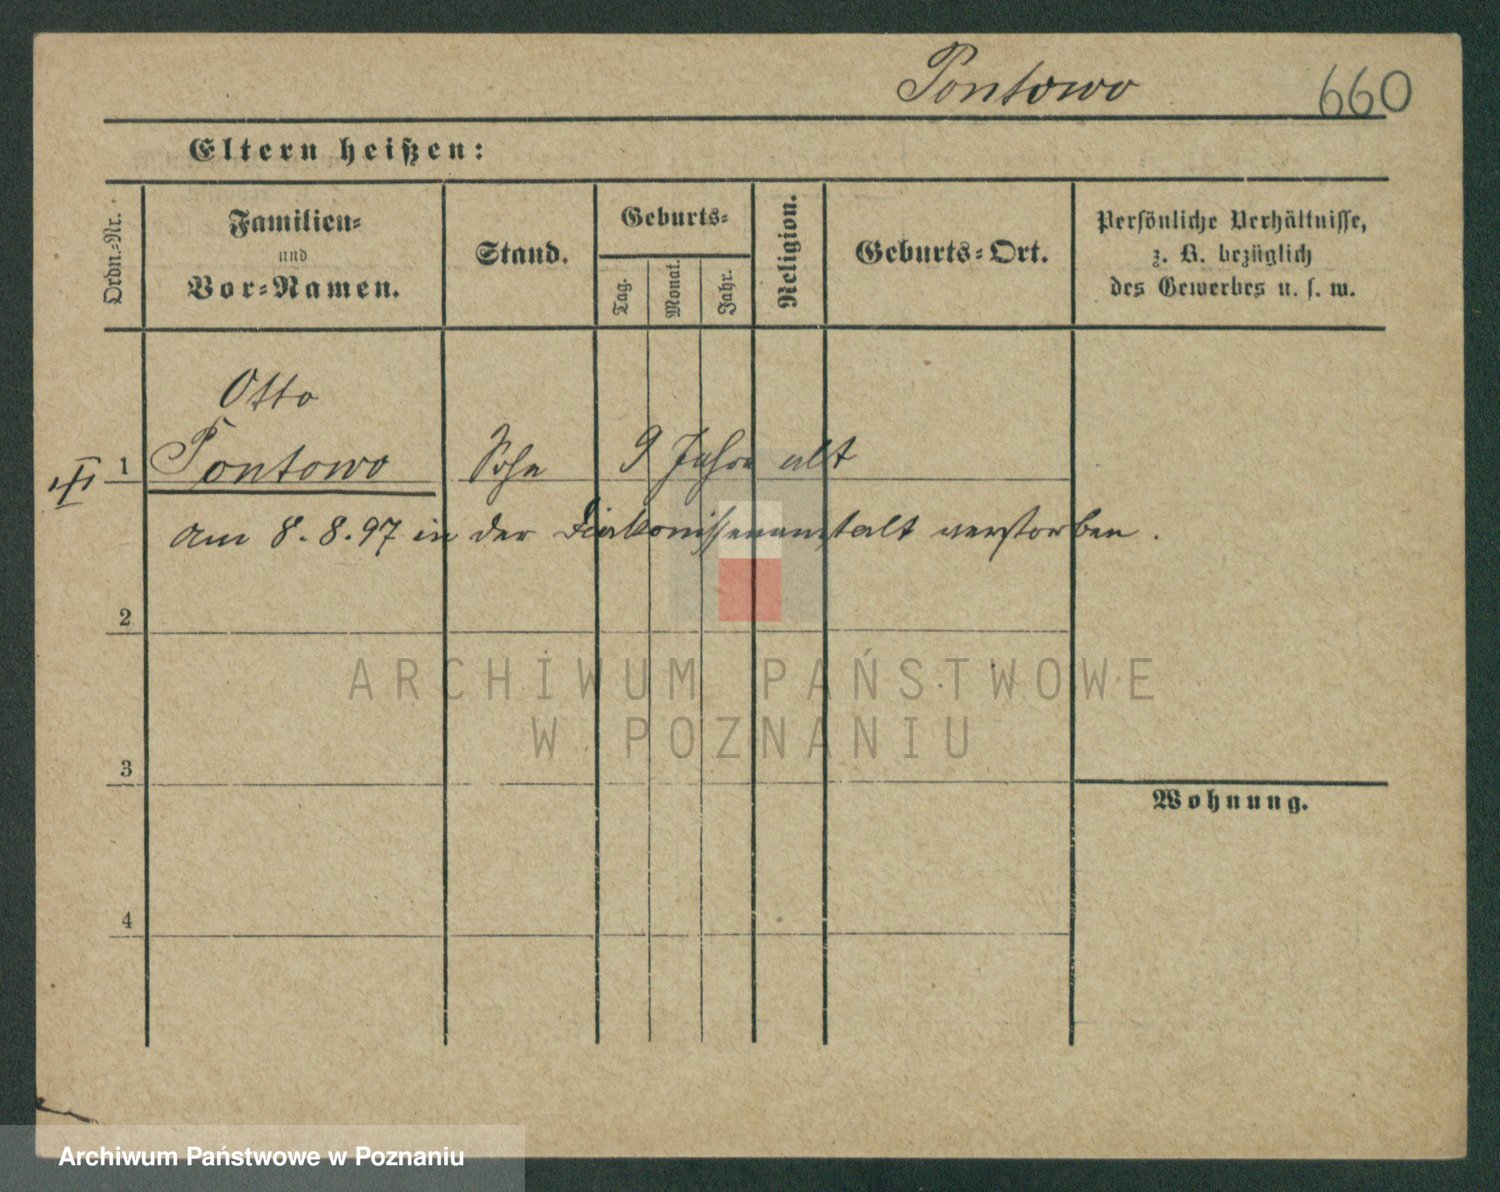 Pontowo 660
Eltern heißen:
Ordn.=Nr.
Familien=
und
Vor=Namen.
Stand.
Geburts=
Tag.
Monat.
Jahr.
Religion.
Geburts=Ort.
Persönliche Verhältnisse,
z. B. bezüglich
des Gewerbes u. s. w.
Otto
1 Pontowo Sohn 9 Jahre alt
am 8.8.97 in der Diakonissenanstalt verstorben.
2
ARCHIWUM PAŃSTWOWE
W POZNANIU
3
Wohnung.
4
Archiwum Państwowe w Poznaniu